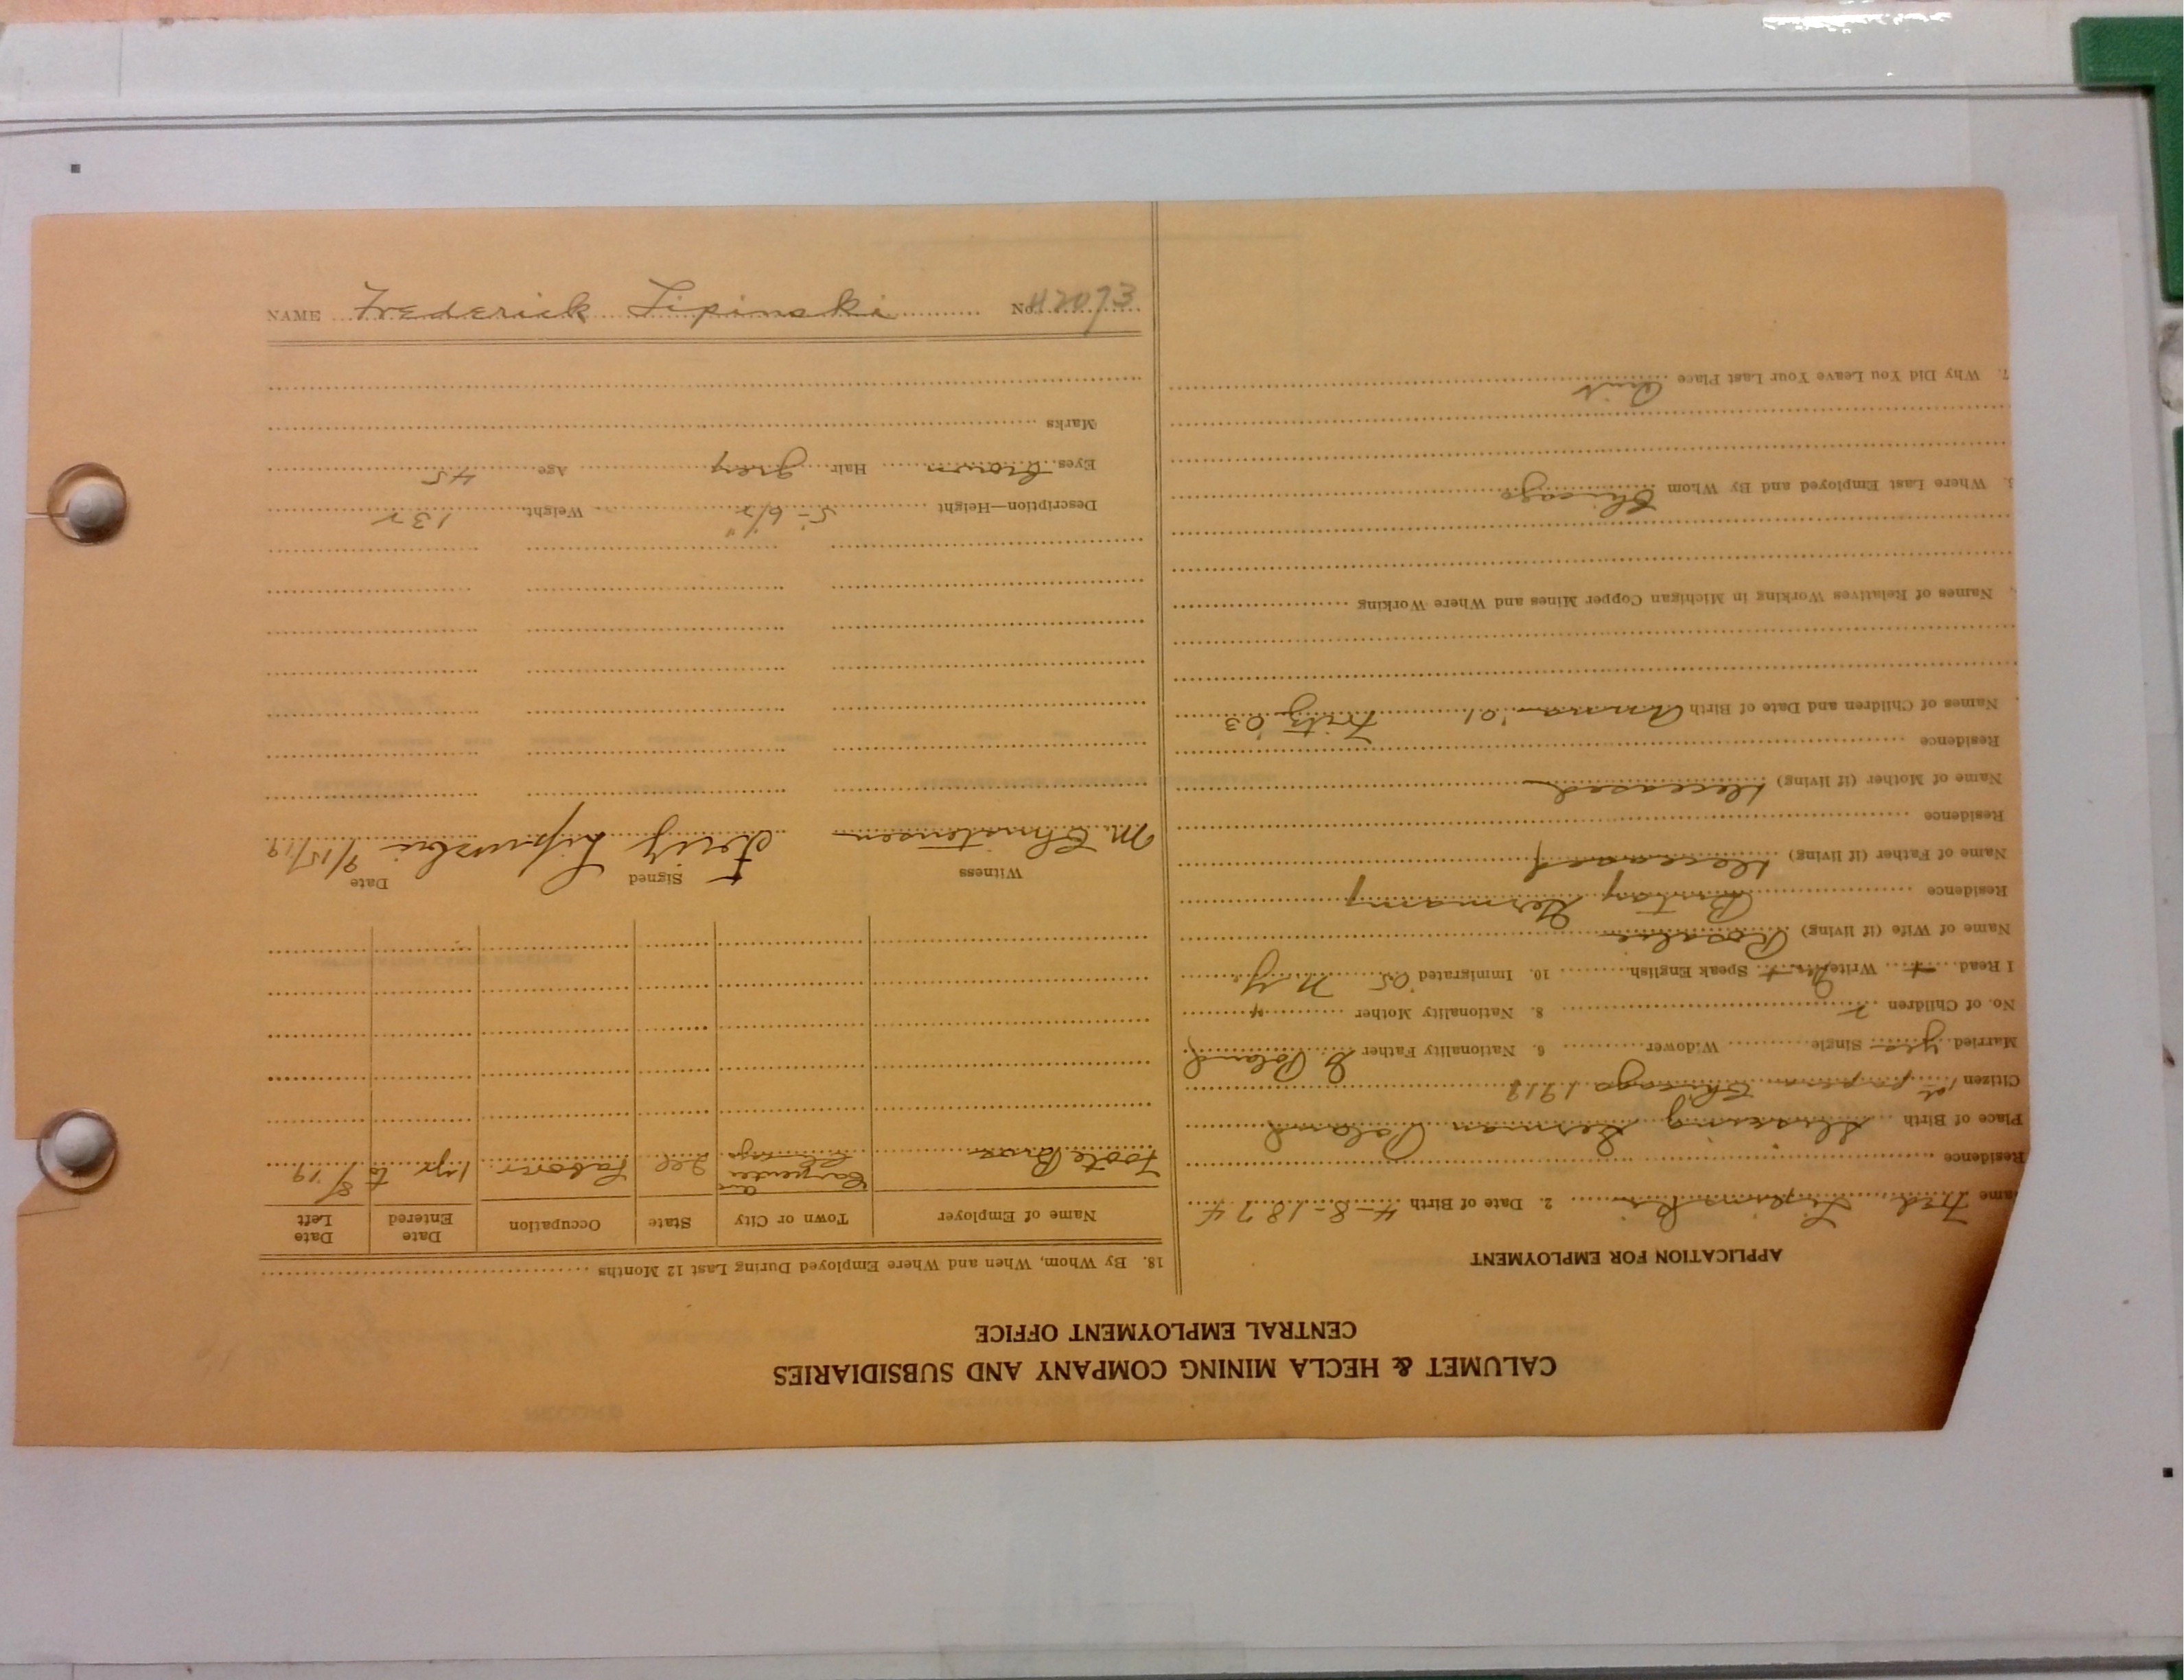 CALUMET & HECLA MINING COMPANY AND SUBSIDIARIES
CENTRAL EMPLOYMENT OFFICE
APPLICATION FOR EMPLOYMENT
ame Fred Lipinski 2. Date of Birth 4-8-1874
Residence
Place of Birth German Poland
Citizen 1st papers Chicago 1919
Married yes Single Widower 6. Nationality Father G Poland
No. of Children 2 8. Nationality Mother "
I Read + Write + Speak English 10. Immigrated '05 N.Y.
Name of Wife (if living) Rosalie
Residence Germany
Name of Father (if living) deceased
Residence
Name of Mother (if living) deceased
Residence
Names of Children and Date of Birth Anna '01 Fritz '03
Names of Relatives Working in Michigan Copper Mines and Where Working
Where Last Employed and By Whom Chicago
7. Why Did You Leave Your Last Place Quit
18. By Whom, When and Where Employed During Last 12 Months
Name of Employer Town or City State Occupation Date Entered Date Left
Foote Bros Carpenter av Chicago Ill Laborer 1 yr to 8/19
Witness Signed Date
M. Christensen Friz Lipinski 9/15/19
Description—Height 5'-6 1/2" Weight 132
Eyes brown Hair grey Age 45
Marks
NAME Frederick Lipinski No. 42073